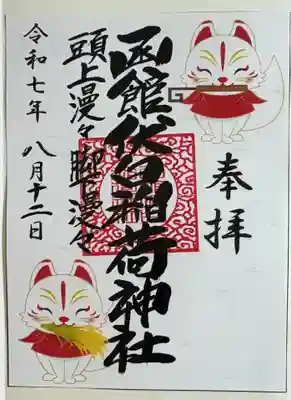 奉拝
函館伏見稲荷神社
頭上漫々脚下漫々
令和七年 八月十二日